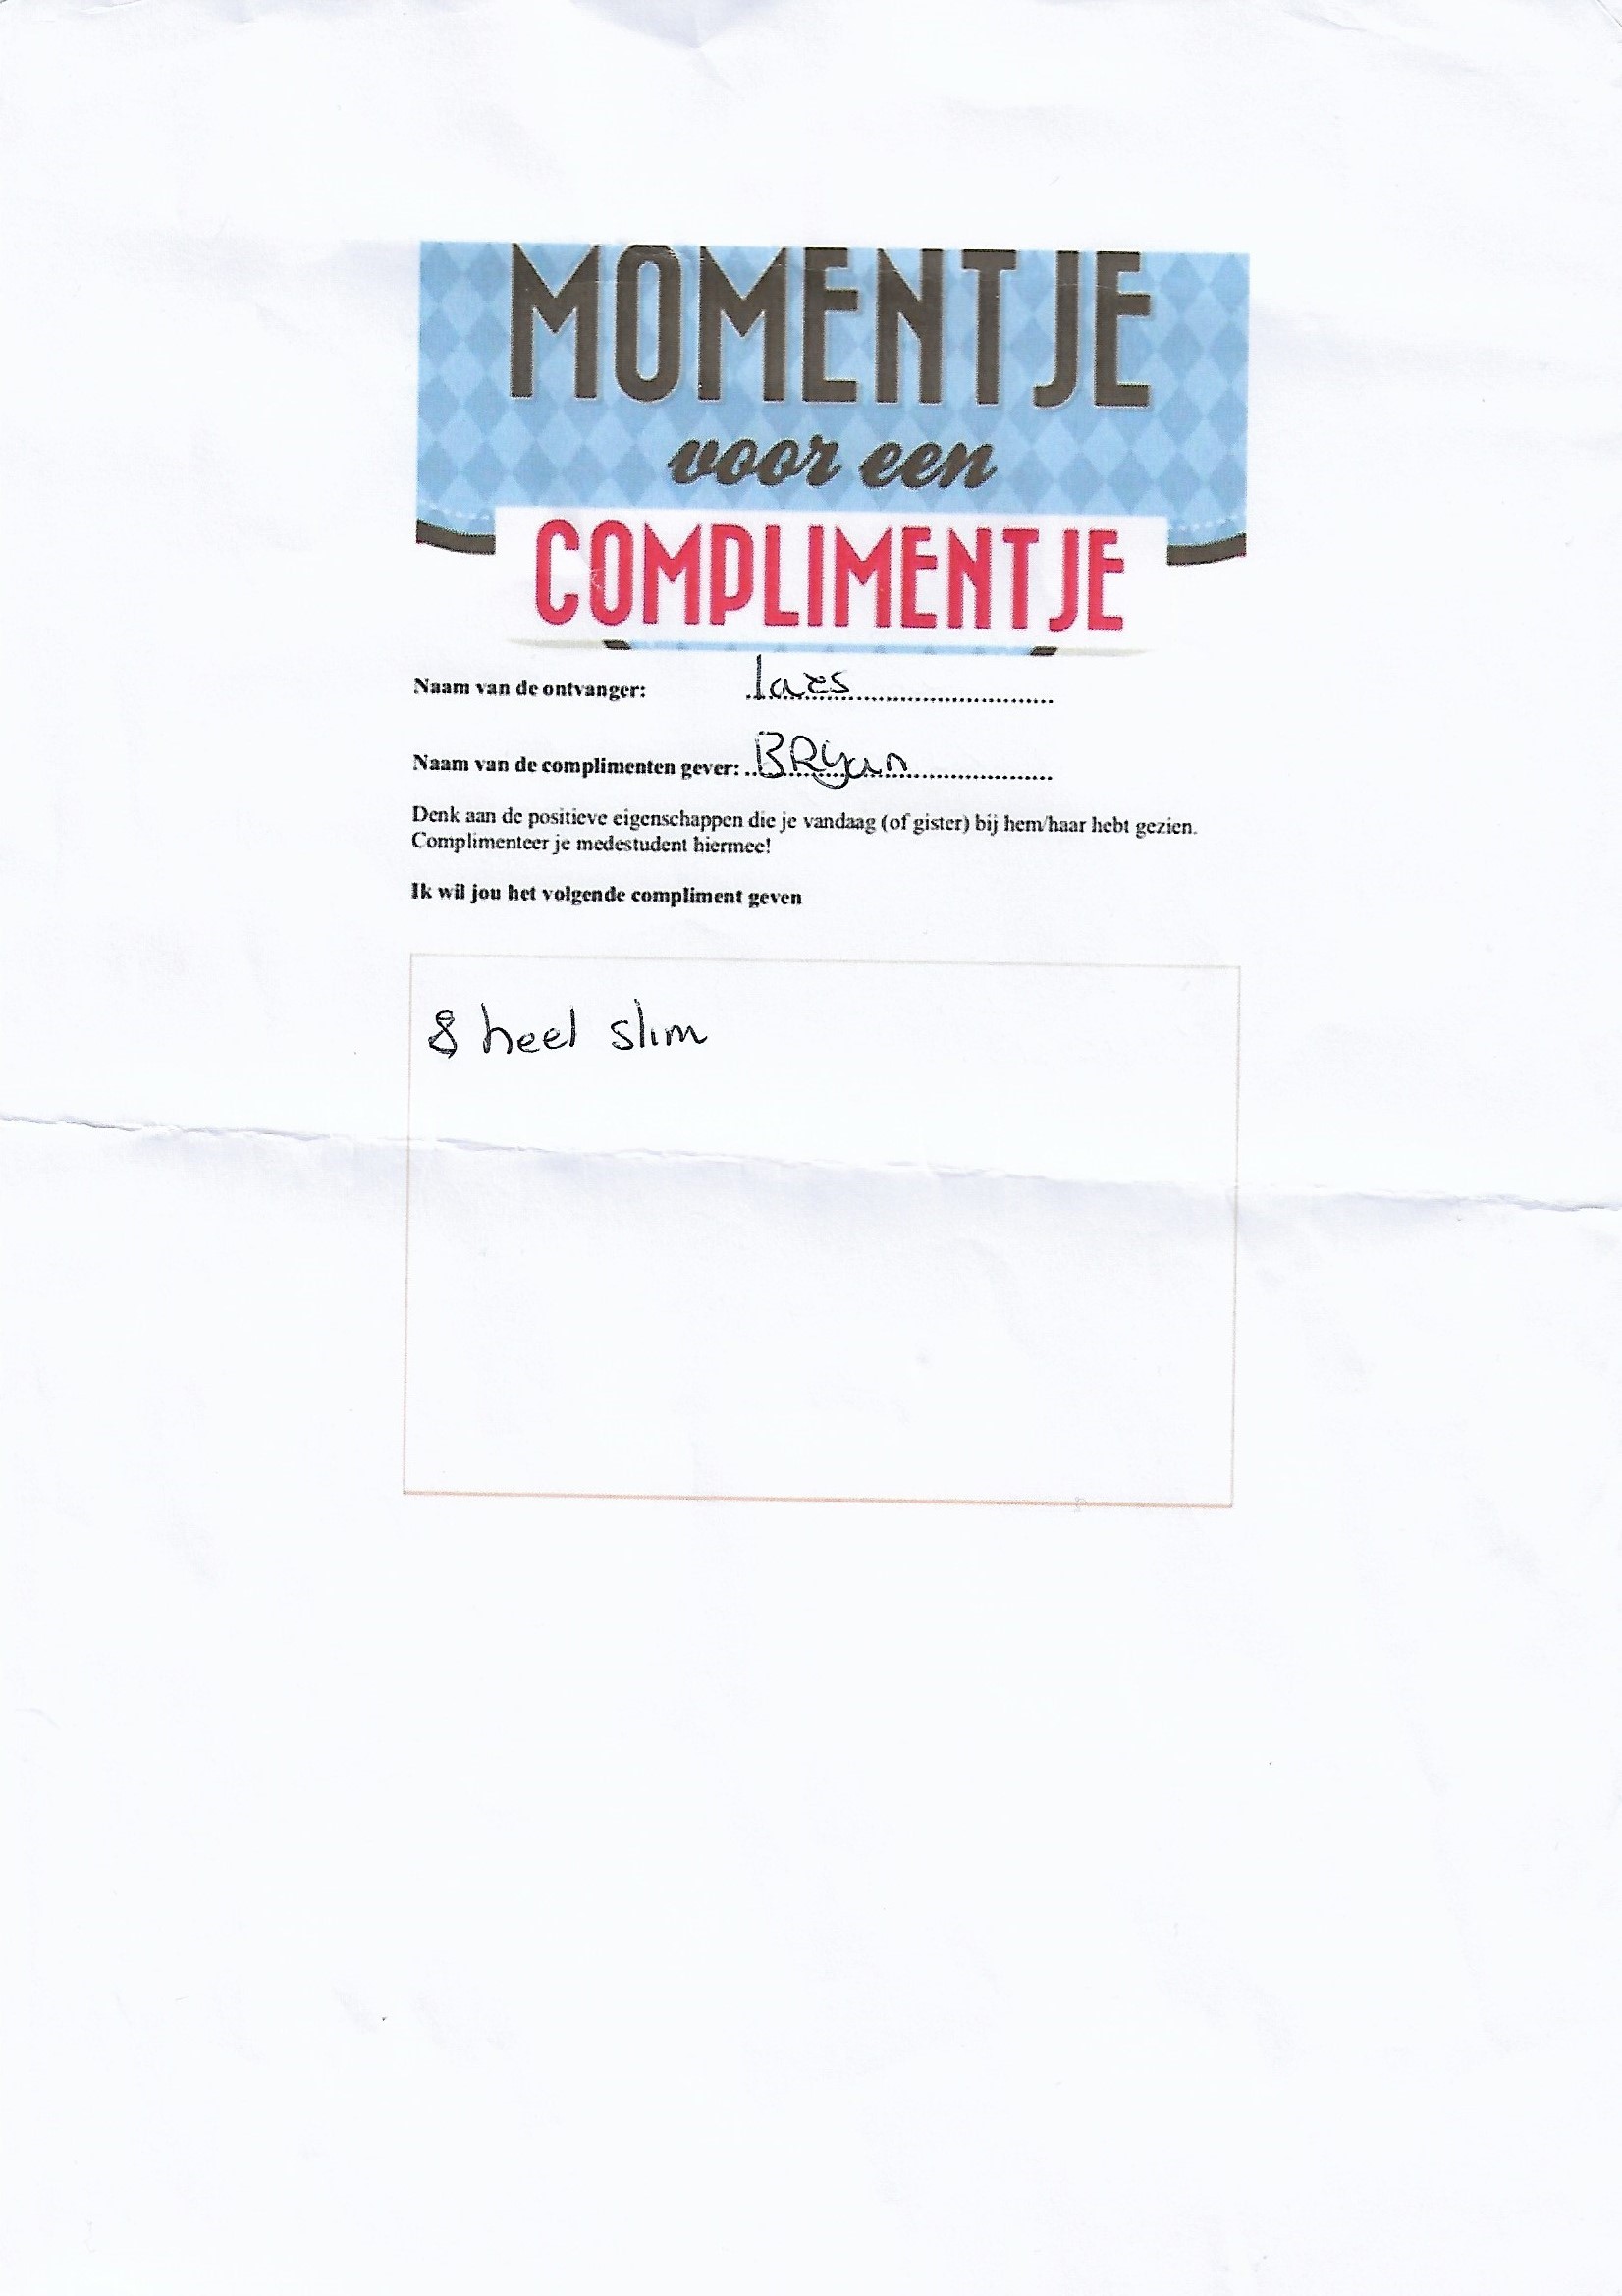 MOMENTJE
voor een
COMPLIMENTJE
Naam van de ontvanger: lars
Naam van de complimenten gever: BRyan
Denk aan de positieve eigenschappen die je vandaag (of gister) bij hem/haar hebt gezien.
Complimenteer je medestudent hiermee!
Ik wil jou het volgende compliment geven
8 heel slim